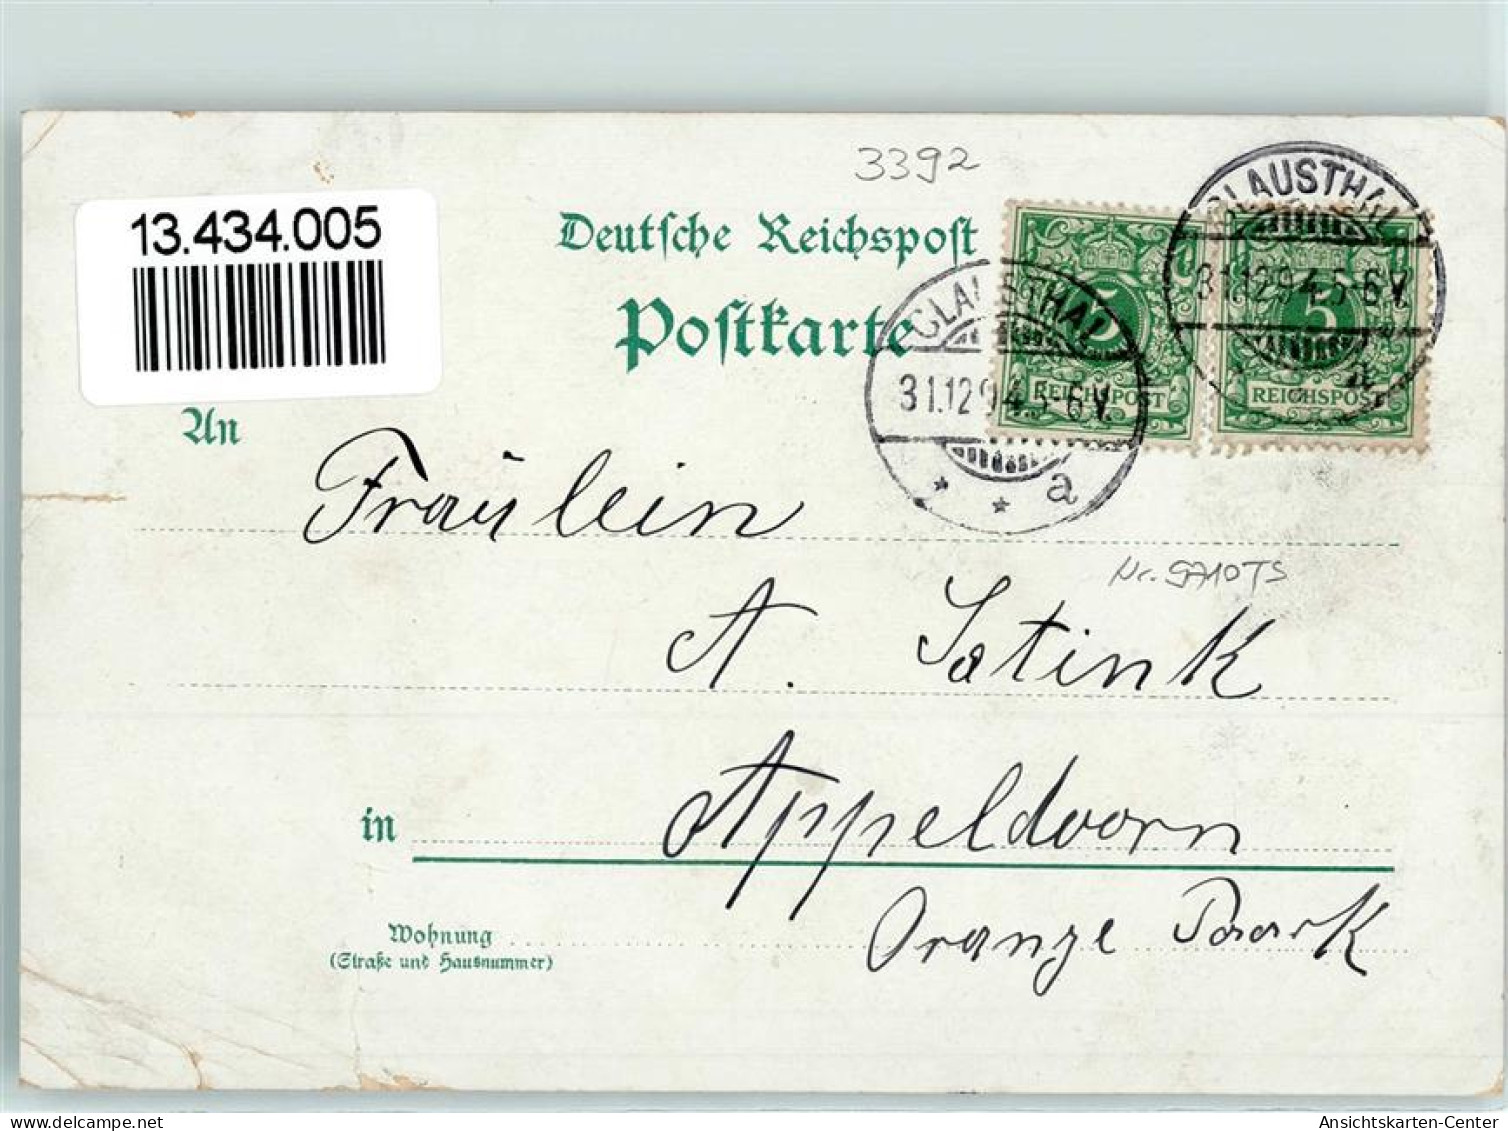 3392
13.434.005
Deutsche Reichspost
Postkarte
CLAUSTHAL
31.12.94.5-6V.
a
CLAUSTHAL
31.12.94.5-6V.
a
5
REICHSPOST
5
REICHSPOST
An
Fräulein
A. Satink
Appeldoorn
in
Orange Paark
Wohnung
(Straße und Hausnummer)
oldthing.de
Ansichtskarten-Center